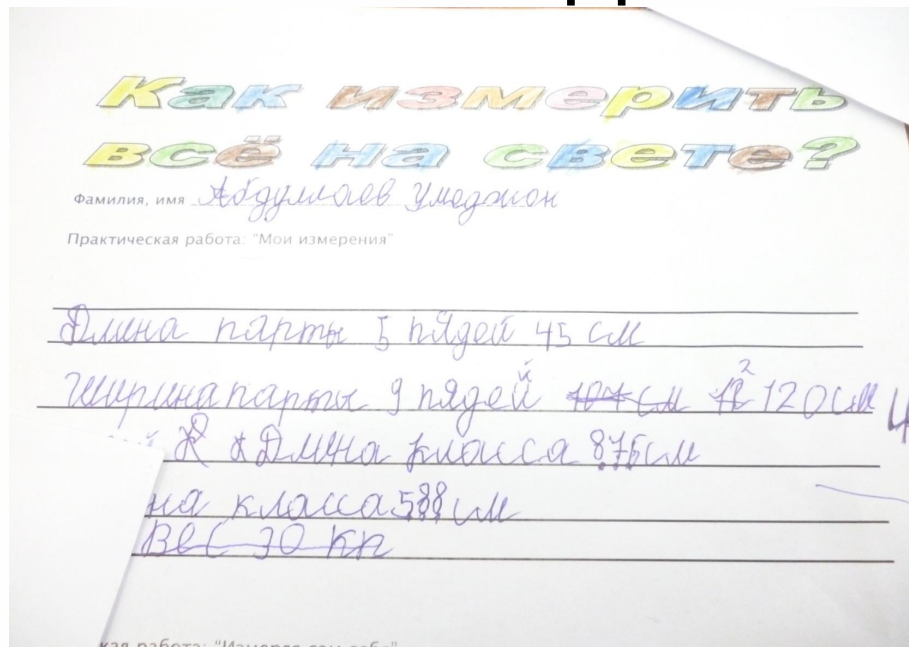 Как измерить
всё на свете?
Фамилия, имя Абдуллаев Умеджон
Практическая работа: "Мои измерения"
Длина парты 5 пядей 45 см
Ширина парты 9 пядей 107 см 12 120 см
Длина класса 876 см
на класса 588 см
Вес 30 кг
кая работа: "Измеряю сам себя"